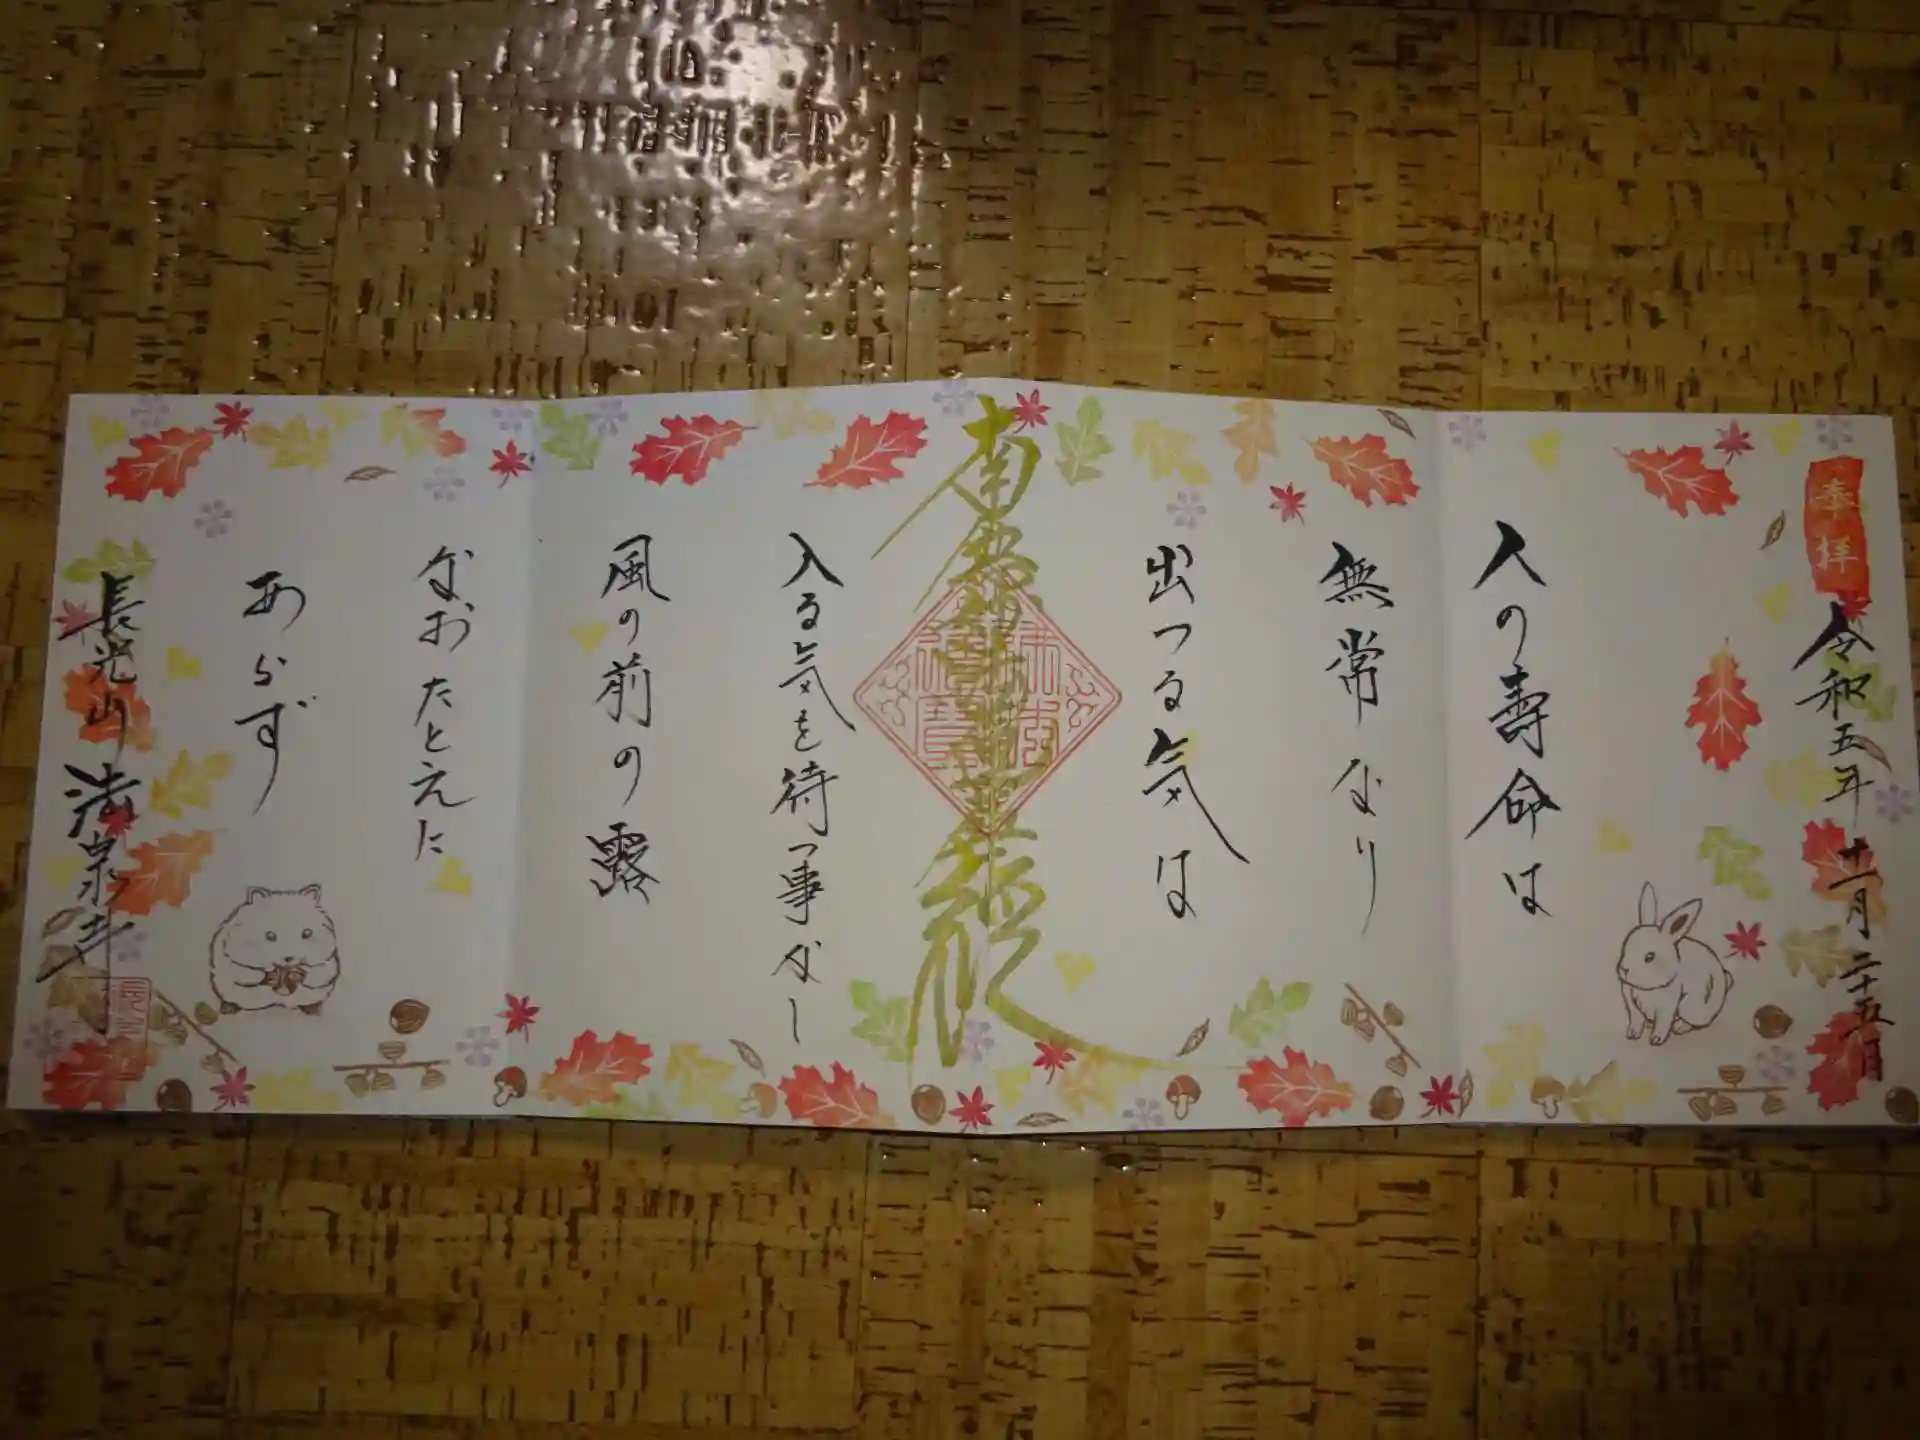 奉拝
令和五年十一月二十五日
人の寿命は
無常なり
出つる気は
南無妙法蓮華経
入る気を待つ事なし
風の前の露
なおたとえに
あらず
長光山
法泉寺